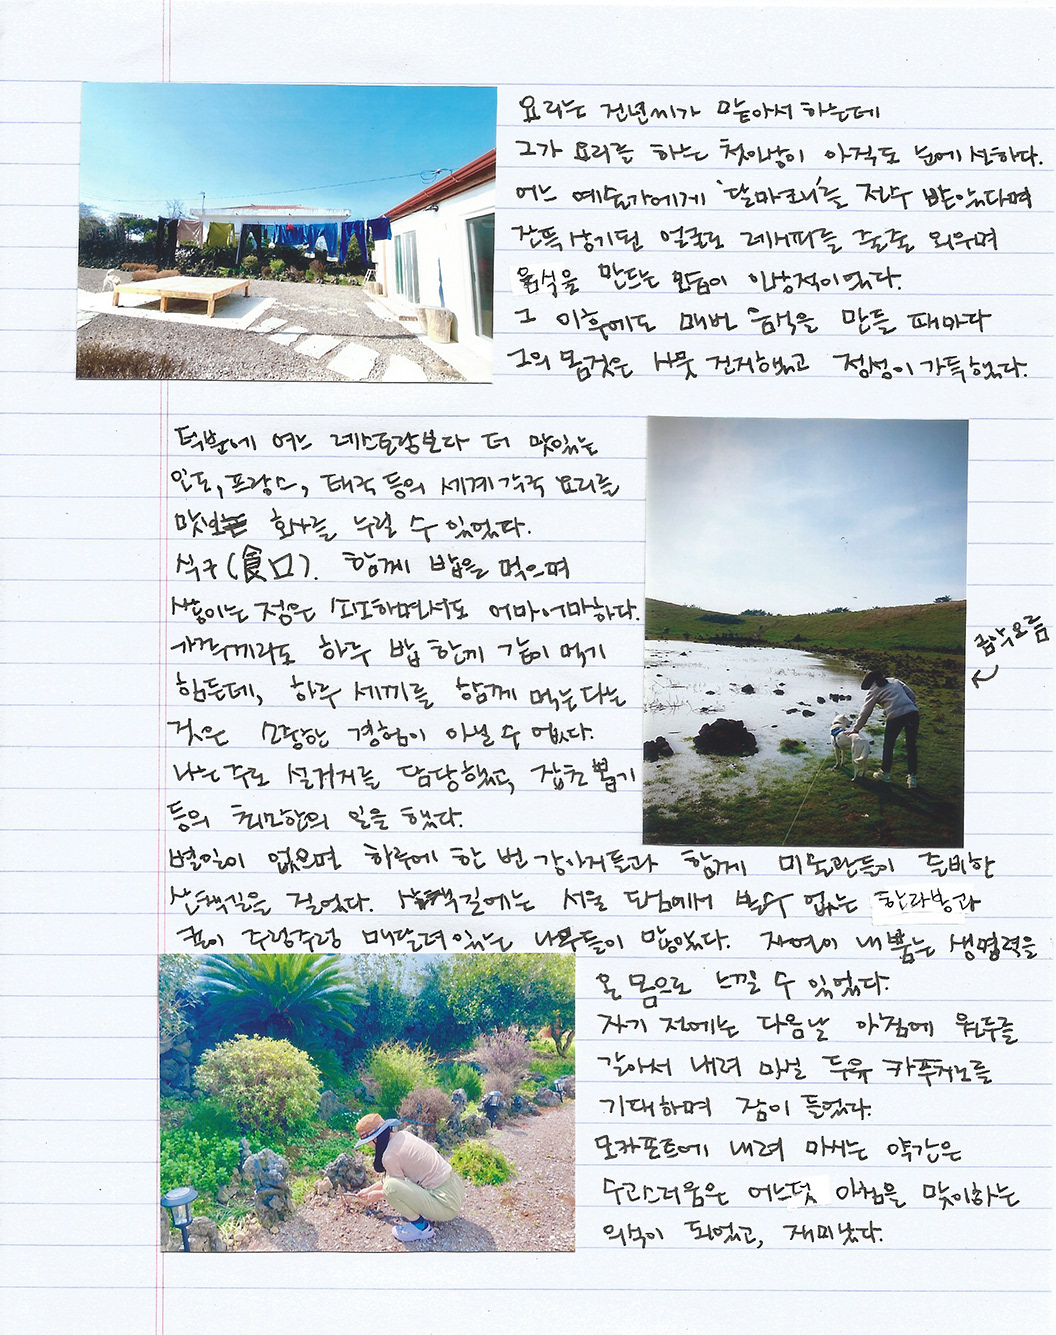 요리는 건년씨가 맡아서 하는데
그가 요리를 하는 첫인상이 아직도 눈에 선하다.
어느 예술가에게 '달마크니'를 전수 받았다며
잔뜩 상기된 얼굴로 레시피를 줄줄 외우며
음식을 만드는 모습이 인상적이었다.
그 이후에도 매번 음식을 만들 때마다
그의 몸짓은 사뭇 진지했고 정성이 가득했다.
덕분에 어느 레스토랑보다 더 맛있는
인도, 프랑스, 태국 등의 세계 각국 요리를
맛보는 호사를 누릴 수 있었다.
식구(食口). 함께 밥을 먹으며
쌓이는 정은 소소하면서도 어마어마하다.
가족끼리도 하루 밥 한끼 같이 먹기
힘든데, 하루 세끼를 함께 먹는다는
것은 소중한 경험이 아닐 수 없다.
나는 주로 설거지를 담당했고, 잡초 뽑기
등의 최소한의 일을 했다.
별일이 없으면 하루에 한 번 강아지들과 함께 미술관들이 준비한
산책길을 걸었다. 산책길에는 서울 도심에서 볼 수 없는 한라봉과
귤이 주렁주렁 매달려있는 나무들이 많았다. 자연이 내뿜는 생명력을
온 몸으로 느낄 수 있었다.
자기 전에는 다음날 아침에 원두를
갈아서 내려 마실 두유 카푸치노를
기대하며 잠이 들었다.
모카포트에 내려 마시는 약간은
수고스러움은 어느덧 아침을 맞이하는
의식이 되었고, 재미났다.
금악오름